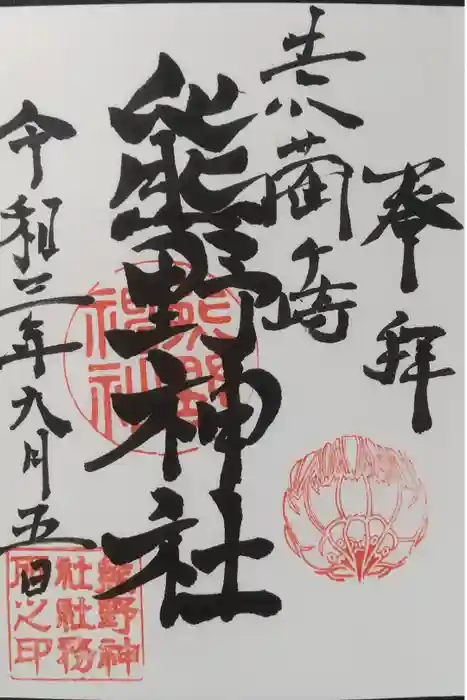 奉拝
熊野神社
令和三年九月五日
熊野
神社
熊野神
社社務
所之印